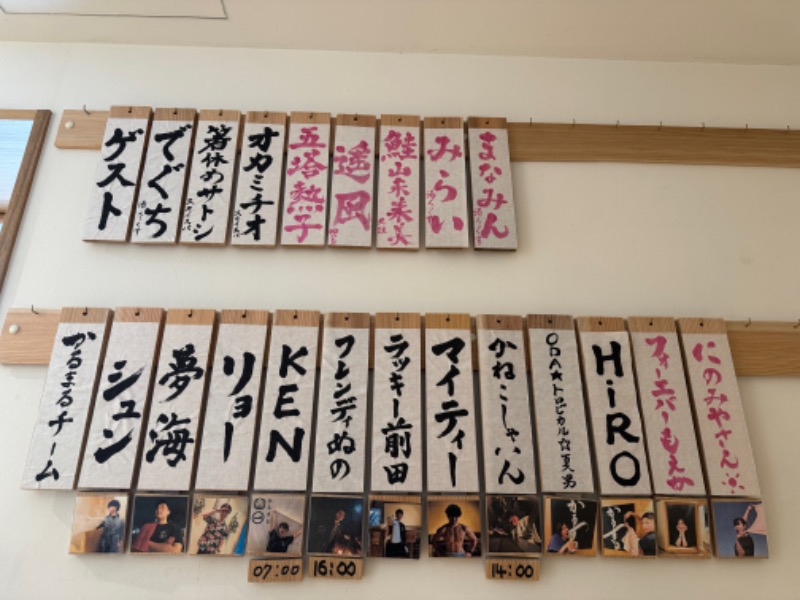 ゲスト
でぐち
箸休めサトシ
オカミチオ
五塔熱子
遥風
鮭山未菜美
みらい
まなみん
かるまるチーム
シュン
夢海
リョー
KEN
フレンディぬの
ラッキー前田
マイティー
かねこしゃいん
ODA★トロピカル☆夏男
HiRO
フォーエバーもえか
にのみやさん
07:00
16:00
14:00